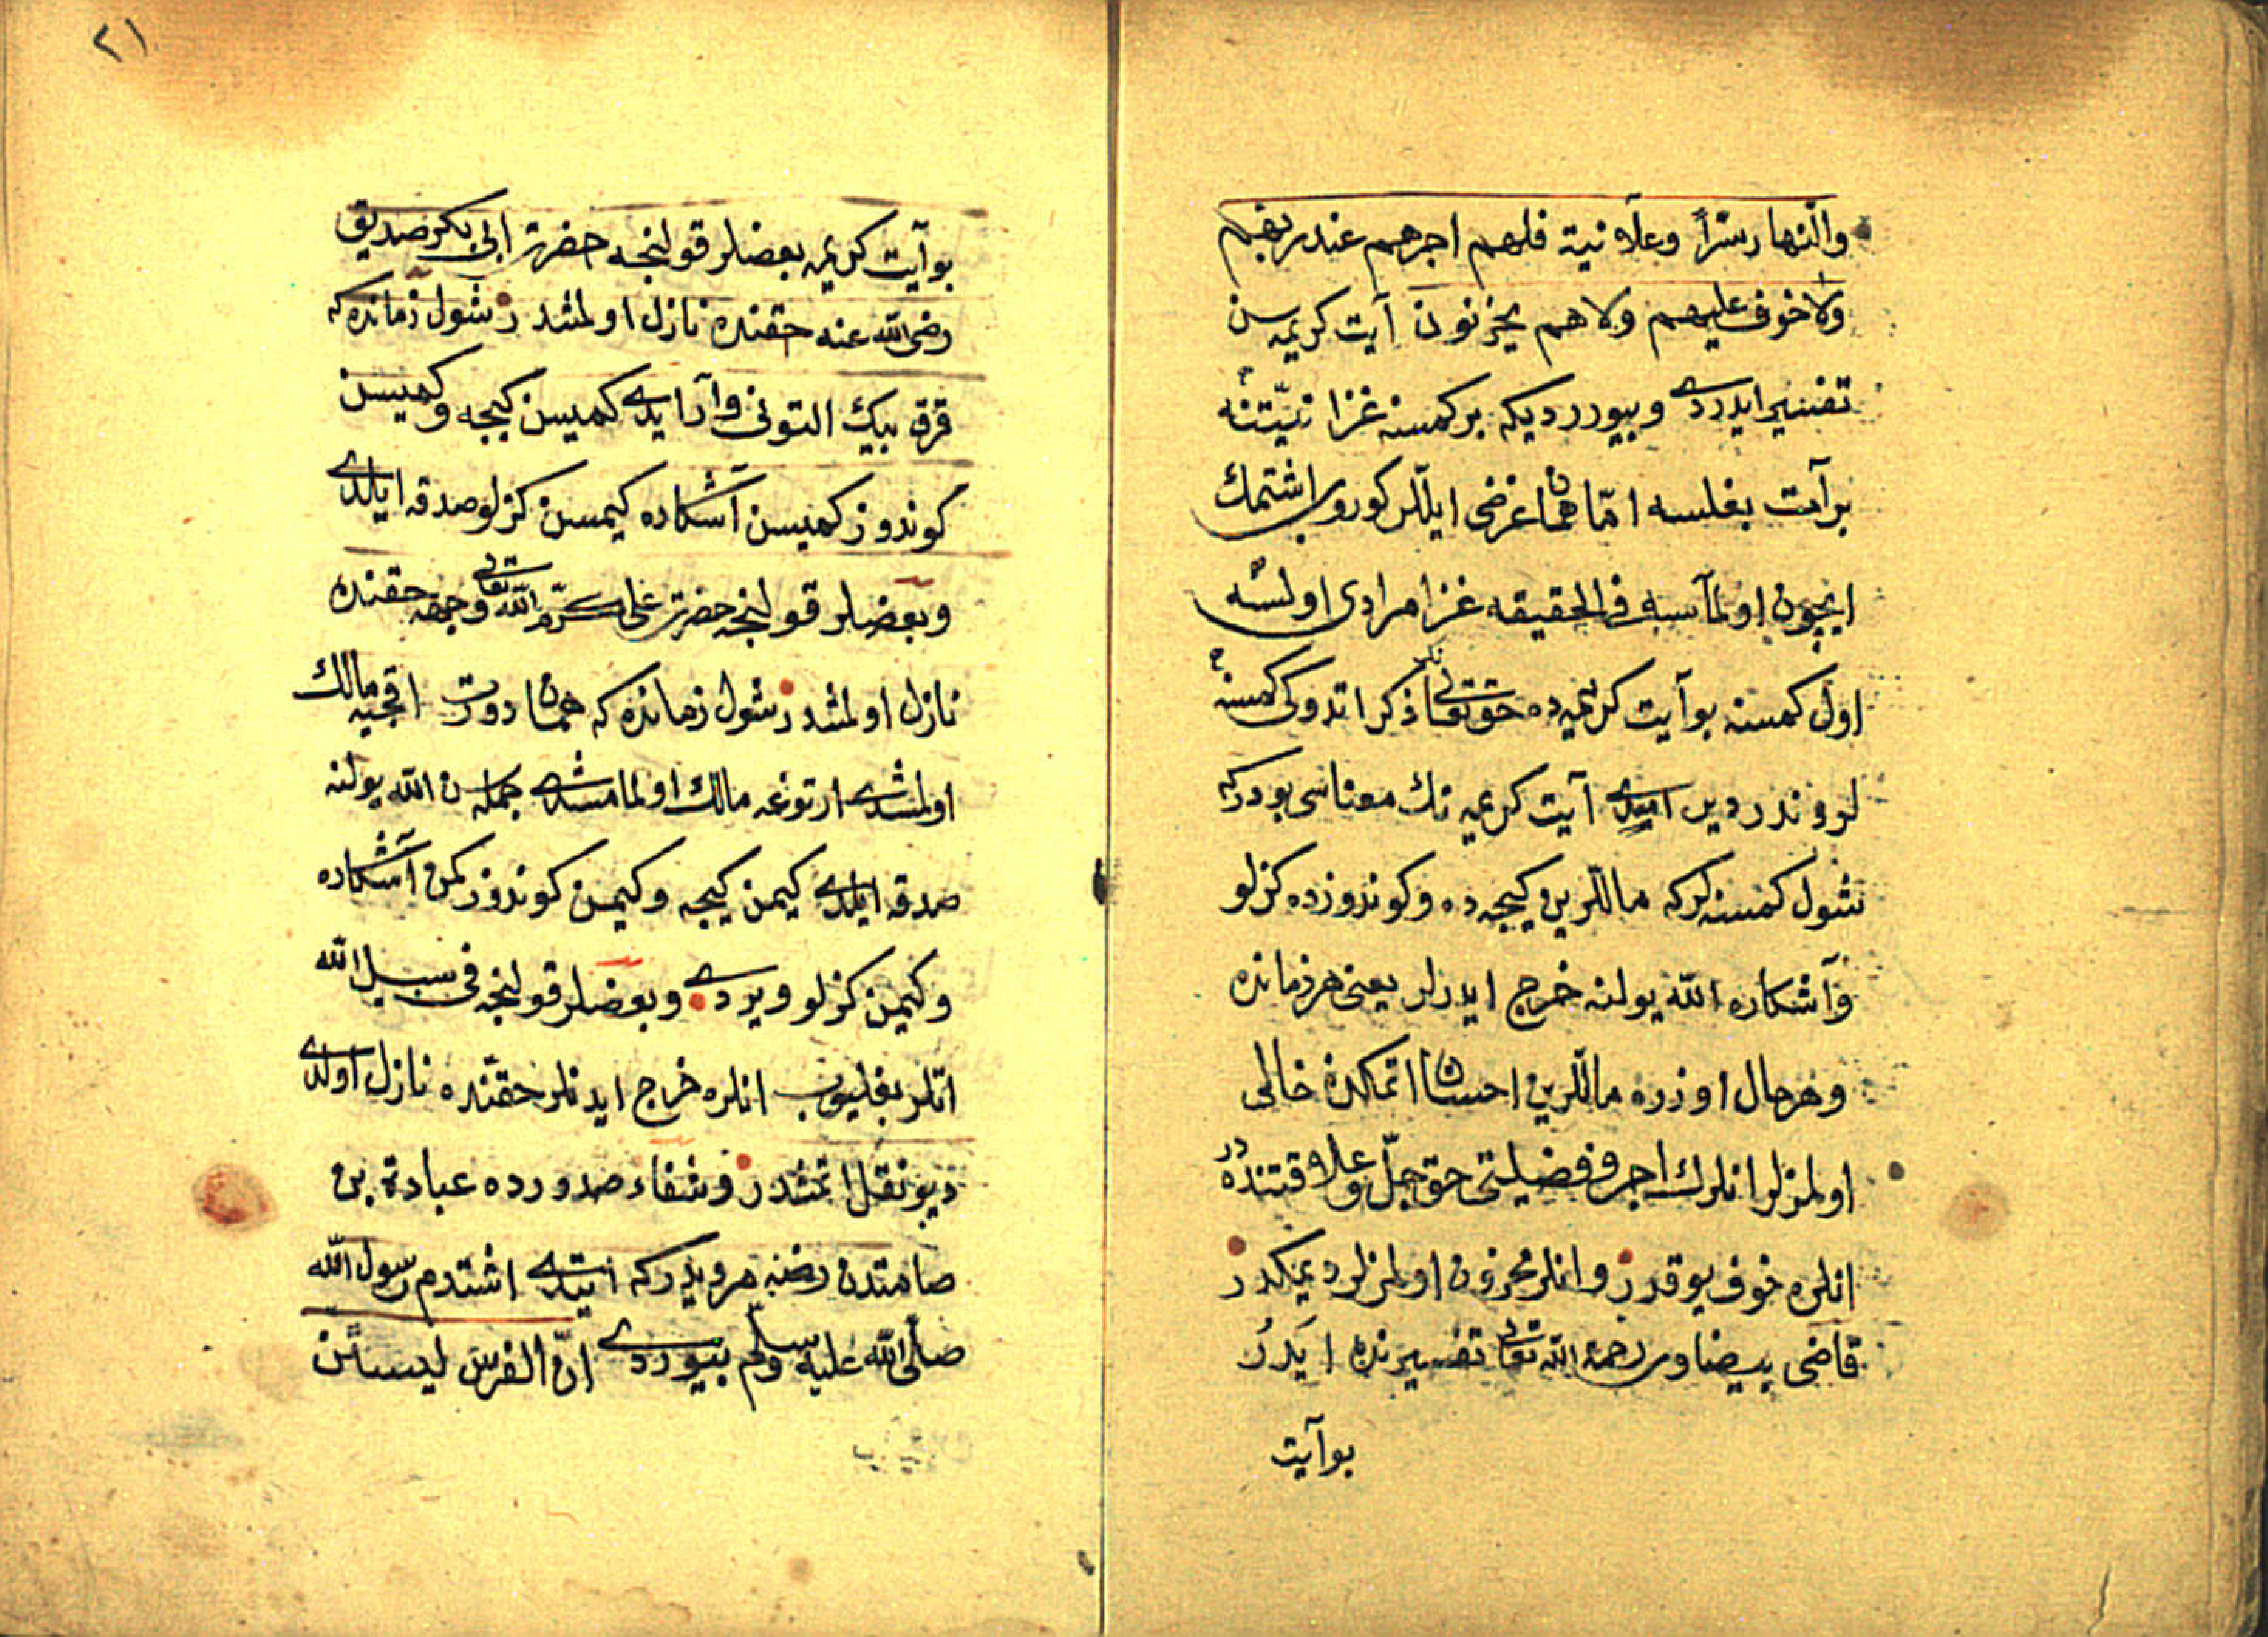 والنهار سرّاً وعلآنية فلهم اجرهم عند ربهم
ولا خوف عليهم ولاهم يحزنون آيت كريمه سن
تفسير ايدردى وبيورر ديكه بر كمسنه غزا نيّتنه
بر آت بغلسه امّا همان غرضى ايللر كوروب اشتمك
ايچون اولمآسه فى الحقيقه غزا مرادى اولسه
اول كمسنه بو آيت كريمه ده حق تعالى ذكر اتدوكى كمسنه
لروندر دير امدى آيت كريمه نك معناسى بودركه
شول كمسنه لركه ماللرين كيجه ده وكوندوزده كزلو
وآشكاره الله يولنه خرج ايدرلر يعنى هر زمانده
وهر حال اوزره ماللرين احسان اتمكدن خالى
اولمزلر انلرك اجر وفضيلتى حق جلّ وعلا قتنده در
انلره خوف يوقدر وانلر محزون اولمزلر ديمكدر
قاضى بيضاوى رحمة الله تعالى تفسيرنده ايدر
بو آيت
٢١
بو آيت كريمه بعضلر قولنجه حضرت ابى بكر صديق
رضى الله عنه حقنده نازل اولمشدر شول زمانده كه
قرق بيك التونى وآرايدى كميسن كيجه وكميسن
كوندوز كميسن آشكاره كيمسن كزلو صدقه ايلدى
وبعضلر قولنجه حضرت على كرّم الله تعالى وجهه حقنده
نازل اولمشدر شول زمانده كه همان دورت اقچيه مالك
اولمشدى ارتوغه مالك اولمامشدى جمله سن الله يولنه
صدقه ايلدى كيمن كيجه وكيمن كوندوز كمن آشكاره
وكيمن كزلو ويردى وبعضلر قولنجه فى سبيل الله
اتلر بغليوب انلره خرج ايدنلر حقنده نازل اولدى
ديو نقل اتمشدر وشفاء صدورده عبادة بن
صامتدن رضنه مرويدركه ايتدى اشتدم رسول الله
صلّى الله عليه وسلّم بيوردى انّ الفرس ليستن